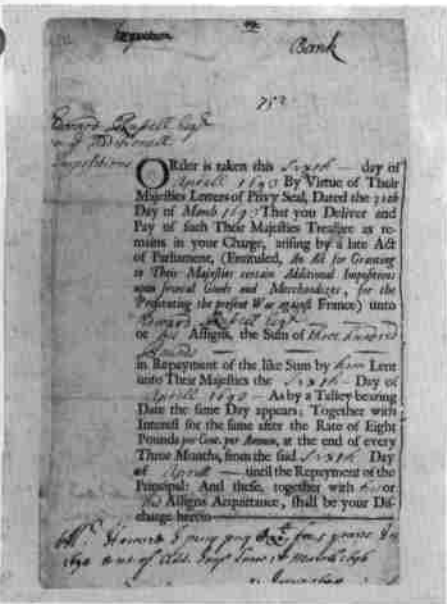 Bank
752
Edward Russell Esqr
and Additionall
Impositions
ORder is taken this Sixth day of
Aprill 1693 By Virtue of Their
Majesties Letters of Privy Seal, Dated the
Day of 1693 That you Deliver and
Pay of such Their Majesties Treasure as re-
mains in your Charge, arising by a late Act
of Parliament, (Entituled, An Act for Granting
to Their Majesties certain Additional Impositions
upon several Goods and Merchandizes, for the
Prosecuting the present War against France) unto
Edward Russell Esqr
or his Assigns, the Sum of three hundred
pounds
in Repayment of the like Sum by him Lent
unto Their Majesties the Sixth Day of
Aprill 1693 As by a Talley bearing
Date the same Day appears; Together with
Interest for the same after the Rate of Eight
Pounds per Cent. per Annum, at the end of every
Three Months, from the said Sixth Day
of Aprill until the Repayment of the
Principal: And these, together with his or
his Assigns Acquittance, shall be your Dis-
charge herein
Mr. Howard I pray pay
out of